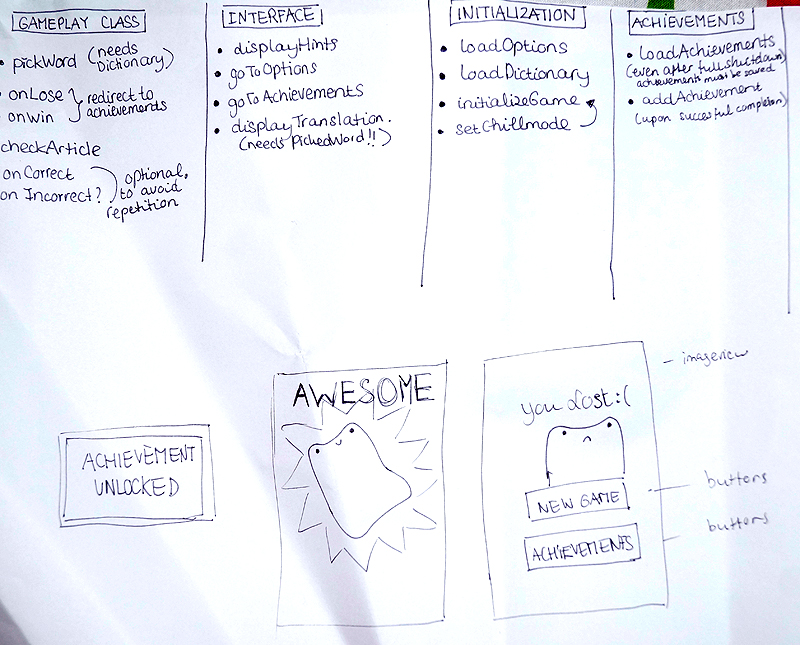 GAMEPLAY CLASS
• pickWord (needs
Dictionary)
• onLose
onWin
redirect to
achievements
checkArticle
onCorrect
on Incorrect?
optional,
to avoid
repetition
INTERFACE
• displayHints
• goToOptions
• goToAchievements
• displayTranslation.
(needs PickedWord!!)
INITIALIZATION
• loadOptions
• loadDictionary
• initializeGame
• setChillmode
ACHIEVEMENTS
• loadAchievements
(even after full shutdown)
achievements must be saved
• addAchievement
(upon succesful completion)
ACHIEVEMENT
UNLOCKED
AWESOME
you lost :(
NEW GAME
ACHIEVEMENTS
- imageview
- buttons
- buttons